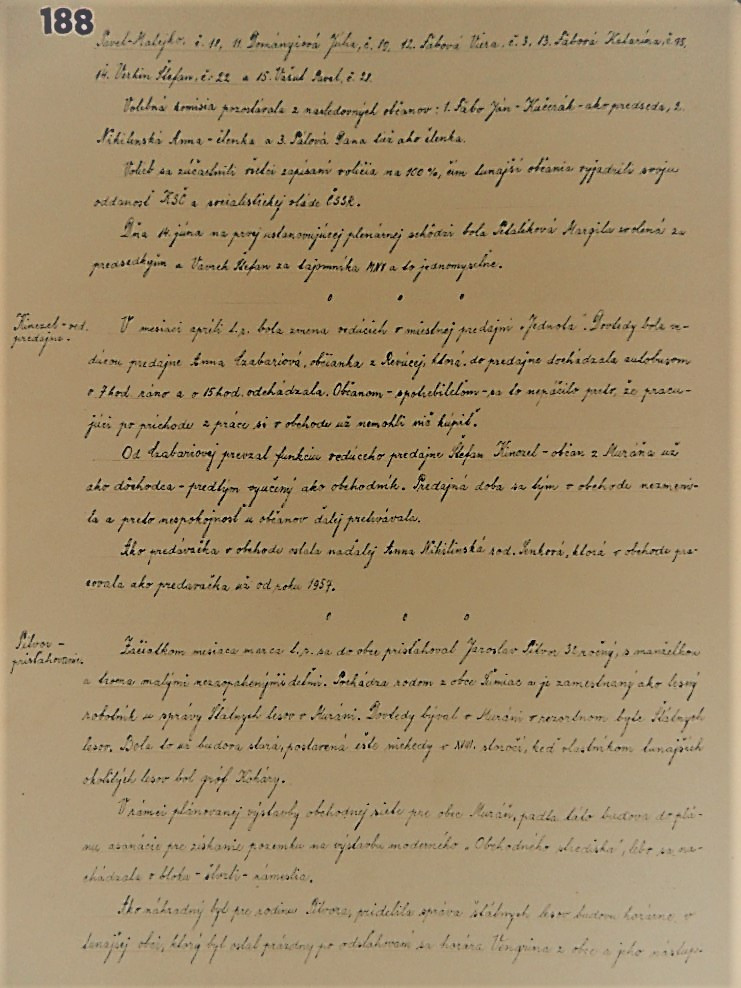 188
Pavel-Malejko, č. 11, 11. Dományiová Júlia, č. 10, 12. Fábová Viera, č. 3, 13. Fábová Katarína, č. 95,
14. Verhin Štefan, č. 22 a 15. Vašut Pavel, č. 28.
Volebná komisia pozostávala z nasledovných občanov: 1. Fabo Ján - Kučerák - ako predseda, 2.
Nikilinská Anna - členka a 3. Pálová Dana tiež ako členka.
Volieb sa zúčastnili všetci zapísaní voličia na 100 %, čím tunajší občania vyjadrili svoju
oddanosť KSČ a socialistickej vláde ČSSR.
Dňa 14. júna na prvej ustanovujúcej plenárnej schôdzi bola Petaliková Margita zvolená za
predsedkyňu a Vavrek Štefan za tajomníka MNV a to jednomyseľne.
Kinezel - ved.
predajne.
V mesiaci apríli t.r. bola zmena vedúcich v miestnej predajni „Jednota". Dovtedy bola ve-
dúcou predajne Anna Czabariová, občianka z Revúcej, ktorá do predajne dochádzala autobusom
o 7 hod. ráno a o 15 hod. odchádzala. Občanom - spotrebiteľom - sa to nepáčilo preto, že pracu-
júci po príchode z práce si v obchode už nemohli nič kúpiť.
Od Czabariovej prevzal funkciu vedúceho predajne Štefan Kinezel - občan z Muráňa už
ako dôchodca - predtým vyučený ako obchodník. Predajná doba sa tým v obchode nezmeni-
la a preto nespokojnosť u občanov ďalej pretrvávala.
Ako predávačka v obchode ostala naďalej Anna Nikilinská rod. Senková, ktorá v obchode pra-
covala ako predavačka už od roku 1957.
Pitvor -
prisťahovanie.
Začiatkom mesiaca marca t.r. sa do obce prisťahoval Jaroslav Pitvor 32 ročný, s manželkou
a troma malými nezaopatrenými deťmi. Pochádza rodom z obce Šumiac a je zamestnaný ako lesný
robotník u správy Štátnych lesov v Muráni. Dovtedy býval v Muráni v rezortnom byte Štátnych
lesov. Bola to už budova stará, postavená ešte niekedy v XVIII. storočí, keď vlastníkom tunajších
okolitých lesov bol gróf Koháry.
V rámci plánovanej výstavby obchodnej siete pre obec Muráň, padla táto budova do plá-
nu asanácie pre získanie pozemku na výstavbu moderného „Obchodného strediska", lebo sa na-
chádzala v bloku - štvrti - námestia.
Ako náhradný byt pre rodinu Pitvora, pridelila správa štátnych lesov budovu horárne v
tunajšej obci, ktorý byt ostal prázdny po odsťahovaní sa horára Vengrina z obce a jeho nástup-